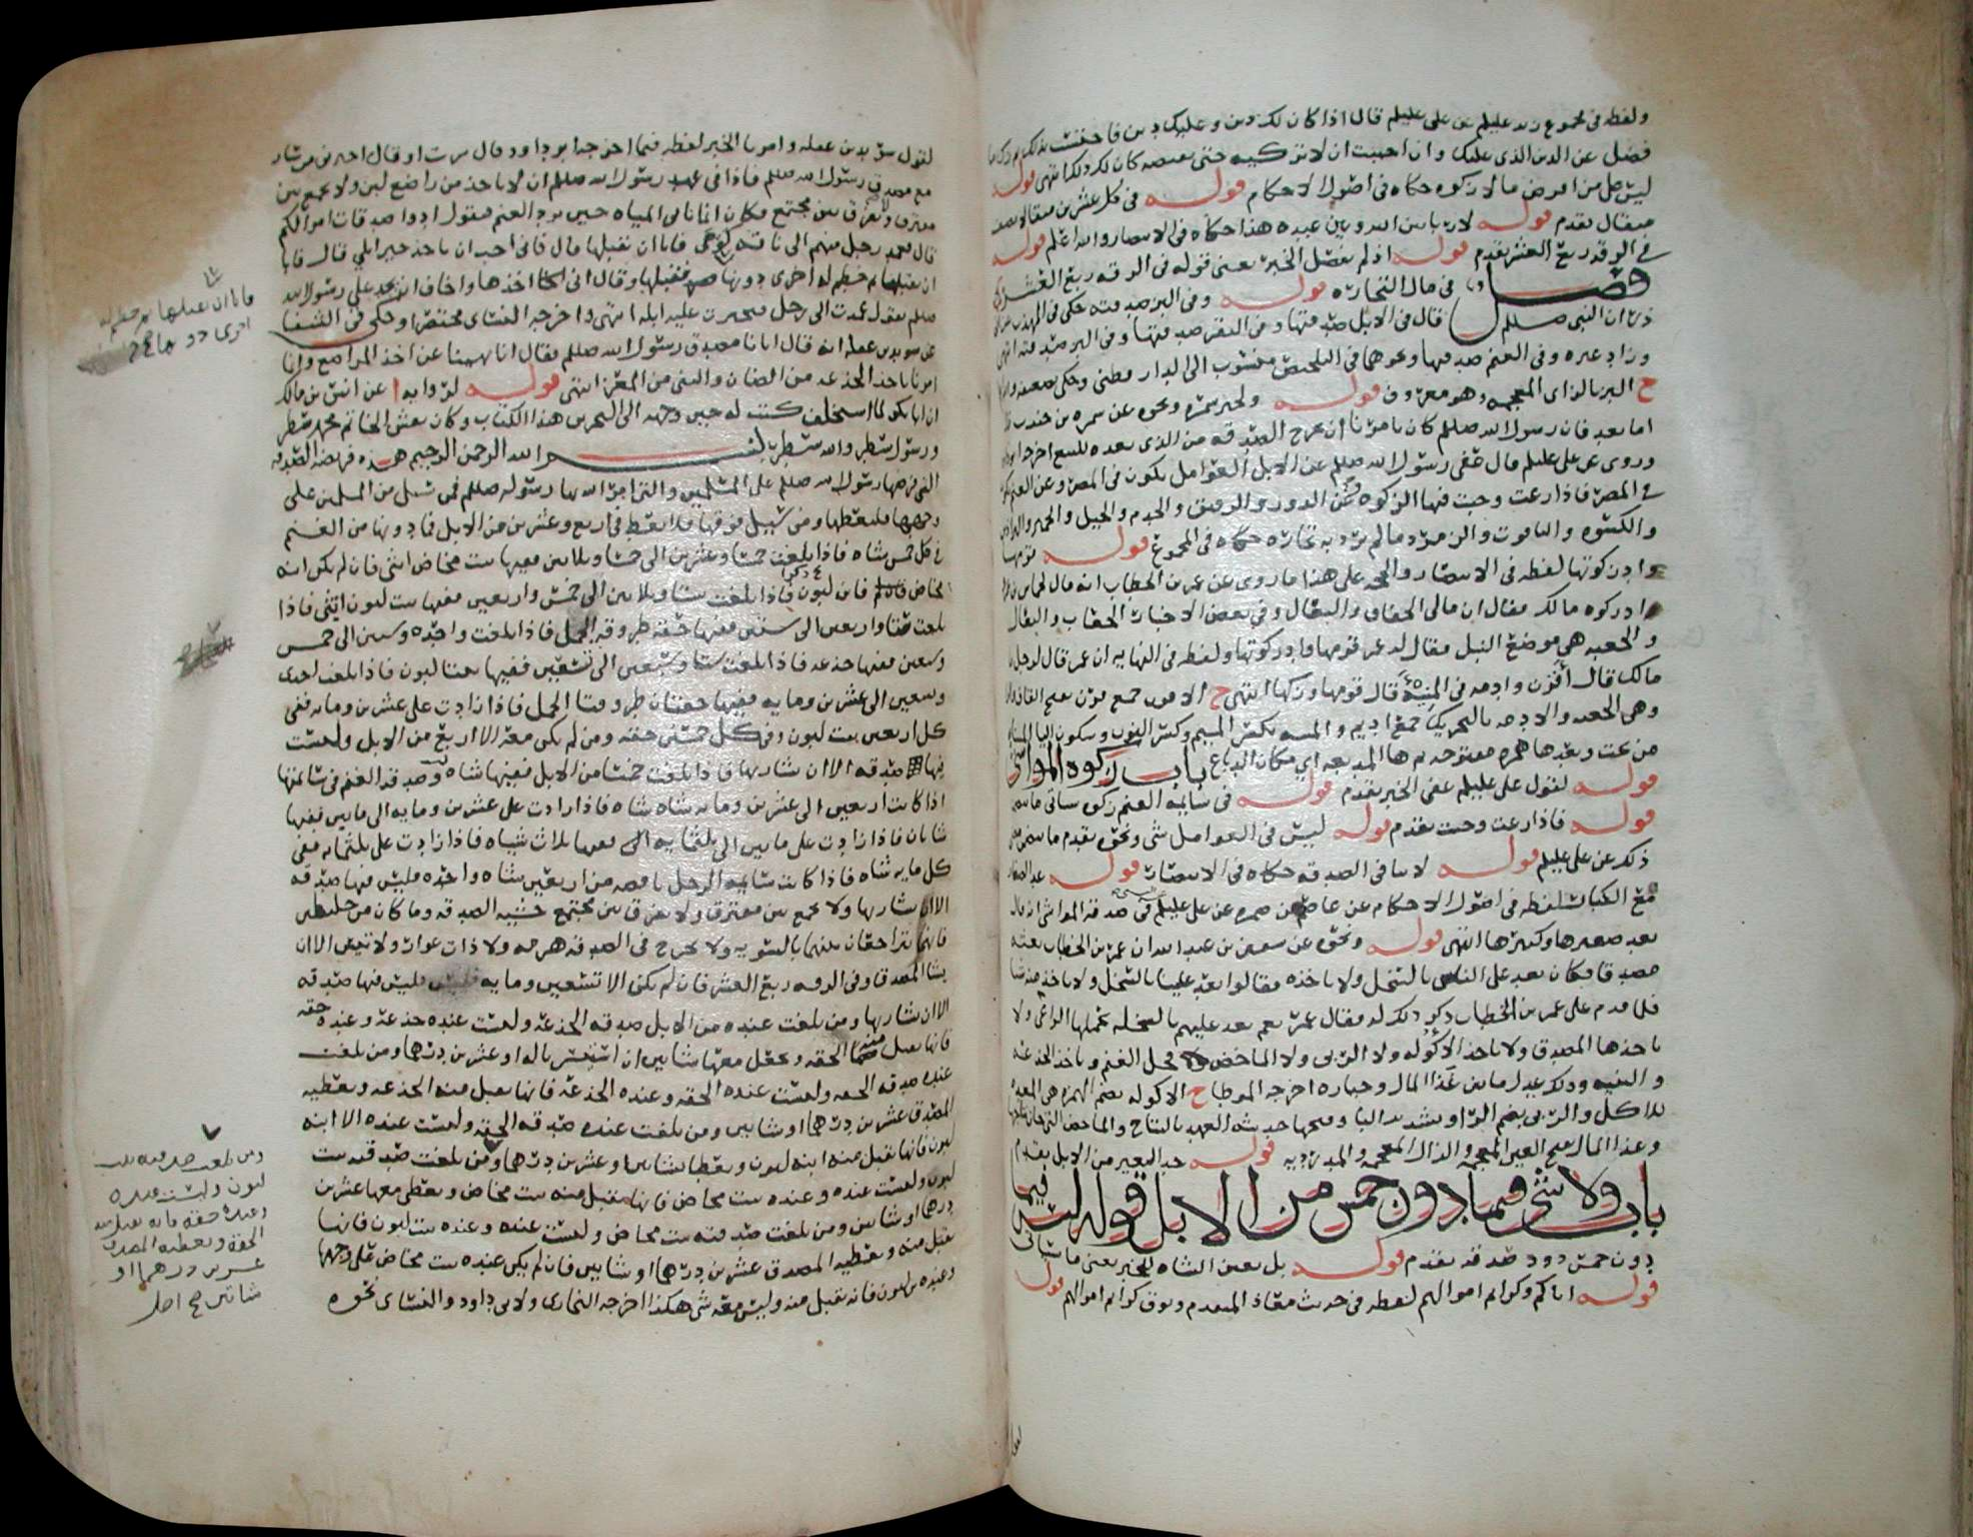 ولفظه في مجموع زيد عليلم عن علي عليلم قال اذا كان لك دين وعليك دين فاحتسب
فضل عن الدين الذي عليك وان احببت ان لا تزكيه حتى تقبضه كان لك ذلك انتهى قوله
ليس من امرض مالا زكوه حكاه في اصول الاحكام قوله في كل عشرين مثقالا نصف
مثقال تقدم قوله لا ربا بين الله وبين عبده هذا حكاه في الانتصار والله اعلم قوله
في الرقه ربع العشر تقدم قوله اذ لم يفصل الخبر يعني قوله في الرقه ربع العشر
فصل في مال التجاره قوله وفي البز صدقته حكى في المهذب
ان النبي صللم قال في الابل صدقتها وفي البقر صدقتها وفي البز صدقته انتهى
وزاد غيره وفي الغنم صدقتها ونحوهما في التلخيص منسوب الى الدار قطني
ح البز بالزاي المعجمه وهو معروف قوله ولخبر سمره ونحوه عن سمره بن جندب
اما بعد فان رسول الله صللم كان يامرنا ان نخرج الصدقه من الذي نعده للبيع
وروي عن علي عليلم قال عفى رسول الله صللم عن الابل العوامل تكون في المصر وعن الغنم
في المصر فاذا رعت وجبت فيها الزكوه وعن الدور والرقيق والخدم والخيل والحمير
والكسوه والياقوت والزمرد مالم ترد به تجاره حكاه في المجموع قوله قومها
واد زكوتها لفظه في الانتصار والحجه على هذا ما روي عن عمر بن الخطاب انه قال
اد زكوه مالك فقال ان مالي الجعاب والنعال وفي بعض الاخبار الجعاب والنعال
والجعبه هي موضع النبل فقال له عمر قومها واد زكوتها ولفظه في النهايه ان عمر قال لرجل
مالك قال اقرن وادمه في المنيئه قال قومها وزكها انتهى ح الاقرن جمع قرن بفتح القاف
وهي الجعبه والادمه بالتحريك جمع اديم والمنيئه بكسر الميم وكسر النون وسكون اليا
من تحت وبعدها همزه مفتوحه ثم ها المدبغه اي مكان الدباغ باب زكوه المواشي
قوله لقول علي عليلم عفى الخبر تقدم قوله في سايمه الغنم زكوه سياتي
قوله فاذا رعت وجبت تقدم قوله ليس في العوامل شي ونحوه تقدم
ذكره عن علي عليلم قوله لا ثنا في الصدقه حكاه في الانتصار قوله
مع الكبار لفظه في اصول الاحكام عن عاصم بن ضمره عن علي عليلم في صدقه المواشي
يعد صغيرها وكبيرها انتهى قوله ونحوه عن سفين بن عبد الله ان عمر بن الخطاب بعثه
مصدقا فكان يعد على الناس بالسخل ولا ياخذه فقالوا تعد علينا بالسخل ولا تاخذ منه
فلما قدم على عمر بن الخطاب ذكر ذلك له فقال عمر نعم تعد عليهم بالسخله يحملها الراعي ولا
ياخذها المصدق ولا ياخذ الاكوله ولا الربى ولا الماخض ولا فحل الغنم وياخذ الجذعه
والثنيه وذلك عدل ما بين غذا المال وخياره اخرجه الموطا ح الاكوله بضم الهمزه هي المعده
للاكل والربى بضم الرا وتشديد البا وفتحها حديثه العهد بالنتاج والماخض
وغذا المال بفتح الغين المعجمه والذال المعجمه والمد رديه قوله خذ البعير من الابل تقدم
باب ولا شي فيما دون خمس من الابل قوله ليس فيما
دون خمس ذود صدقه تقدم قوله بل يعين الشاه للخبر يعني ما سياتي
قوله اياكم وكرايم اموالهم لفظه في حديث معاذ المتقدم وتوق كرايم اموالهم قوله
لقول سويد بن غفله وامرنا الخبر لفظه فيما اخرجه ابو داود قال سرت او قال اخبرني من سار
مع مصدق رسول الله صللم فاذا في عهد رسول الله صللم ان لا ياخذ من راضع لبن ولا يجمع بين
مفترق ولا يفرق بين مجتمع وكان انما ياتي المياه حين ترد الغنم فيقول ادوا صدقات اموالكم
قال فعمد رجل منهم الى ناقه كوما فابا ان يقبلها قال فاني احب ان تاخذ خير ابلي قال فابا
ان يقبلها ثم خطم له اخرى دونها فقبلها وقال اني اخذها واخاف ان يجد علي رسول الله
صللم يقول عمدت الى رجل فتخيرت عليه ابله انتهى واخرجه النساي مختصرا وحكى في الشفا
عن سويد بن غفله انه قال اتانا مصدق رسول الله صللم فقال انا نهينا عن اخذ المراضع وانا
امرنا باخذ الجذعه من الضان والثني من المعز انتهى قوله لروايه عن انس بن مالك
ان ابا بكر لما استخلف كتب له حين وجهه الى البحرين هذا الكتاب وكان نقش الخاتم محمد سطر
ورسول سطر والله سطر بسم الله الرحمن الرحيم هذه فريضه الصدقه
التي فرضها رسول الله صللم على المسلمين والتي امر الله بها رسوله صللم فمن سيل من المسلمين على
وجهها فليعطها ومن سيل فوقها فلا يعط في اربع وعشرين من الابل فما دونها من الغنم
في كل خمس شاه فاذا بلغت خمسا وعشرين الى خمسا وثلاثين ففيها بنت مخاض انثى فان لم يكن ابنه
مخاض فابن لبون ذكر فاذا بلغت ستا وثلاثين الى خمس واربعين ففيها بنت لبون انثى فاذا
بلغت ستا واربعين الى ستين ففيها حقه طروقه الجمل فاذا بلغت واحده وستين الى خمس
وسبعين ففيها جذعه فاذا بلغت ستا وسبعين الى تسعين ففيها بنتا لبون فاذا بلغت احدى
وتسعين الى عشرين ومايه ففيها حقتان طروقتا الجمل فاذا زادت على عشرين ومايه ففي
كل اربعين بنت لبون وفي كل خمسين حقه ومن لم يكن معه الا اربع من الابل وليست
فيها صدقه الا ان يشا ربها فاذا بلغت خمسا من الابل ففيها شاه وصدقه الغنم في سائمتها
اذا كانت اربعين الى عشرين ومايه شاه شاه فاذا زادت على عشرين ومايه الى مايتين ففيها
شاتان فاذا زادت على مايتين الى ثلثمايه ففيها ثلاث شياه فاذا زادت على ثلثمايه ففي
كل مايه شاه فاذا كانت سايمه الرجل ناقصه من اربعين شاه واحده فليس فيها صدقه
الا ان يشا ربها ولا يجمع بين مفترق ولا يفرق بين مجتمع خشيه الصدقه وما كان من خليطين
فانهما يتراجعان بينهما بالسويه ولا يخرج في الصدقه هرمه ولا ذات عوار ولا تيس الا ان
يشا المصدق وفي الرقه ربع العشر فان لم يكن الا تسعين ومايه فليس فيها صدقه
الا ان يشا ربها ومن بلغت عنده من الابل صدقه الجذعه وليست عنده جذعه وعنده حقه
فانها تقبل منه الحقه ويجعل معها شاتين ان استيسر تا له او عشرين درهما ومن بلغت
عنده صدقه الحقه وليست عنده الحقه وعنده الجذعه فانها تقبل منه الجذعه ويعطيه
المصدق عشرين درهما او شاتين ومن بلغت عنده صدقه الحقه وليست عنده الا ابنه
لبون فانها تقبل منه ابنه لبون ويعطا شاتين او عشرين درهما ومن بلغت صدقته بنت
لبون وليست عنده وعنده بنت مخاض فانها تقبل منه بنت مخاض ويعطي معها عشرين
درهما او شاتين ومن بلغت صدقته بنت مخاض وليست عنده وعنده بنت لبون فانها
تقبل منه ويعطيه المصدق عشرين درهما او شاتين فان لم يكن عنده بنت مخاض على وجهها
وعنده ابن لبون فانه يقبل منه وليس معه شي هكذا اخرجه البخاري ولابي داود والنساي نحوه
فابا ان يقبلها ثم خطم له
اخرى دونها
ومن بلغت صدقته بنت
لبون وليست عنده
وعنده حقه فانه تقبل منه
الحقه ويعطيه المصدق
عشرين درهما او
شاتين صح اصل